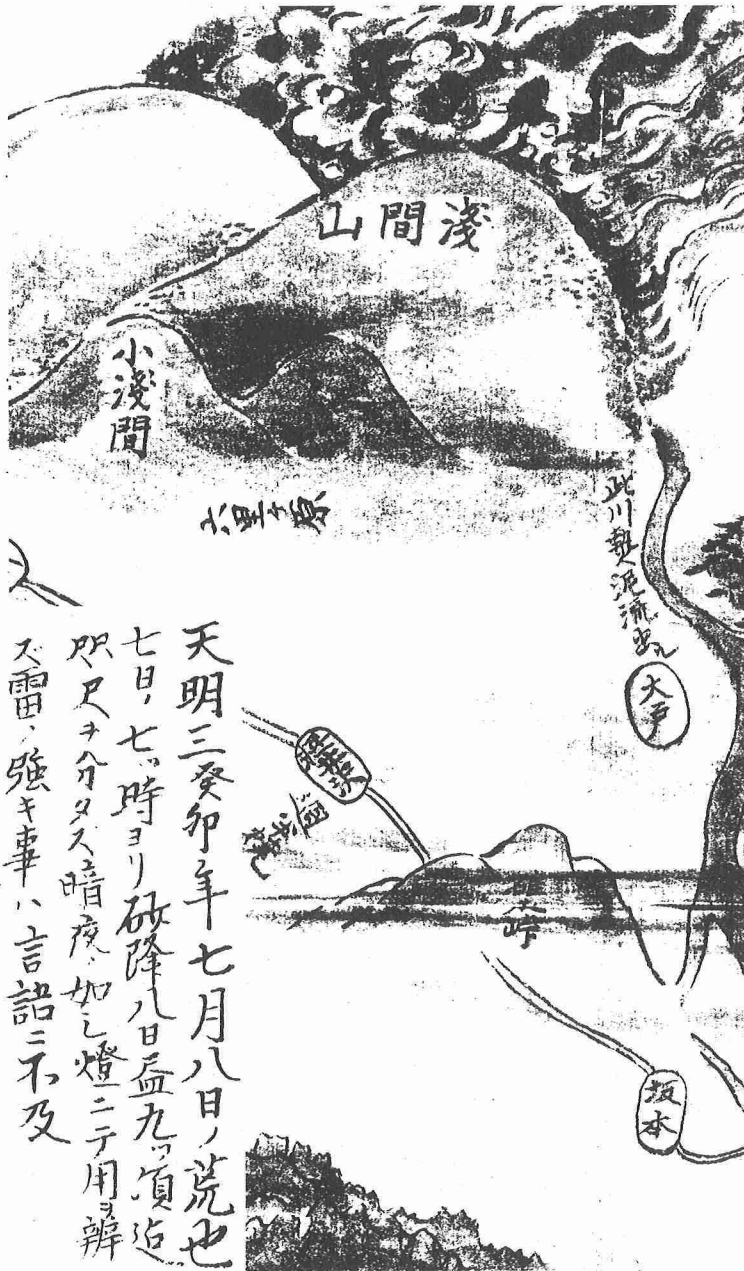 淺間山
小淺間
六里ヶ原
此川熱泥流出ル
大戸
坂本
天明三癸卯年七月八日ノ荒也
七日ノ七ッ時ヨリ砂降八日昼九ッ頃迠
咫尺ヲ分タス暗夜ノ如シ燈ニテ用ヲ辨
ズ雷ノ強キ事ハ言語ニ不及